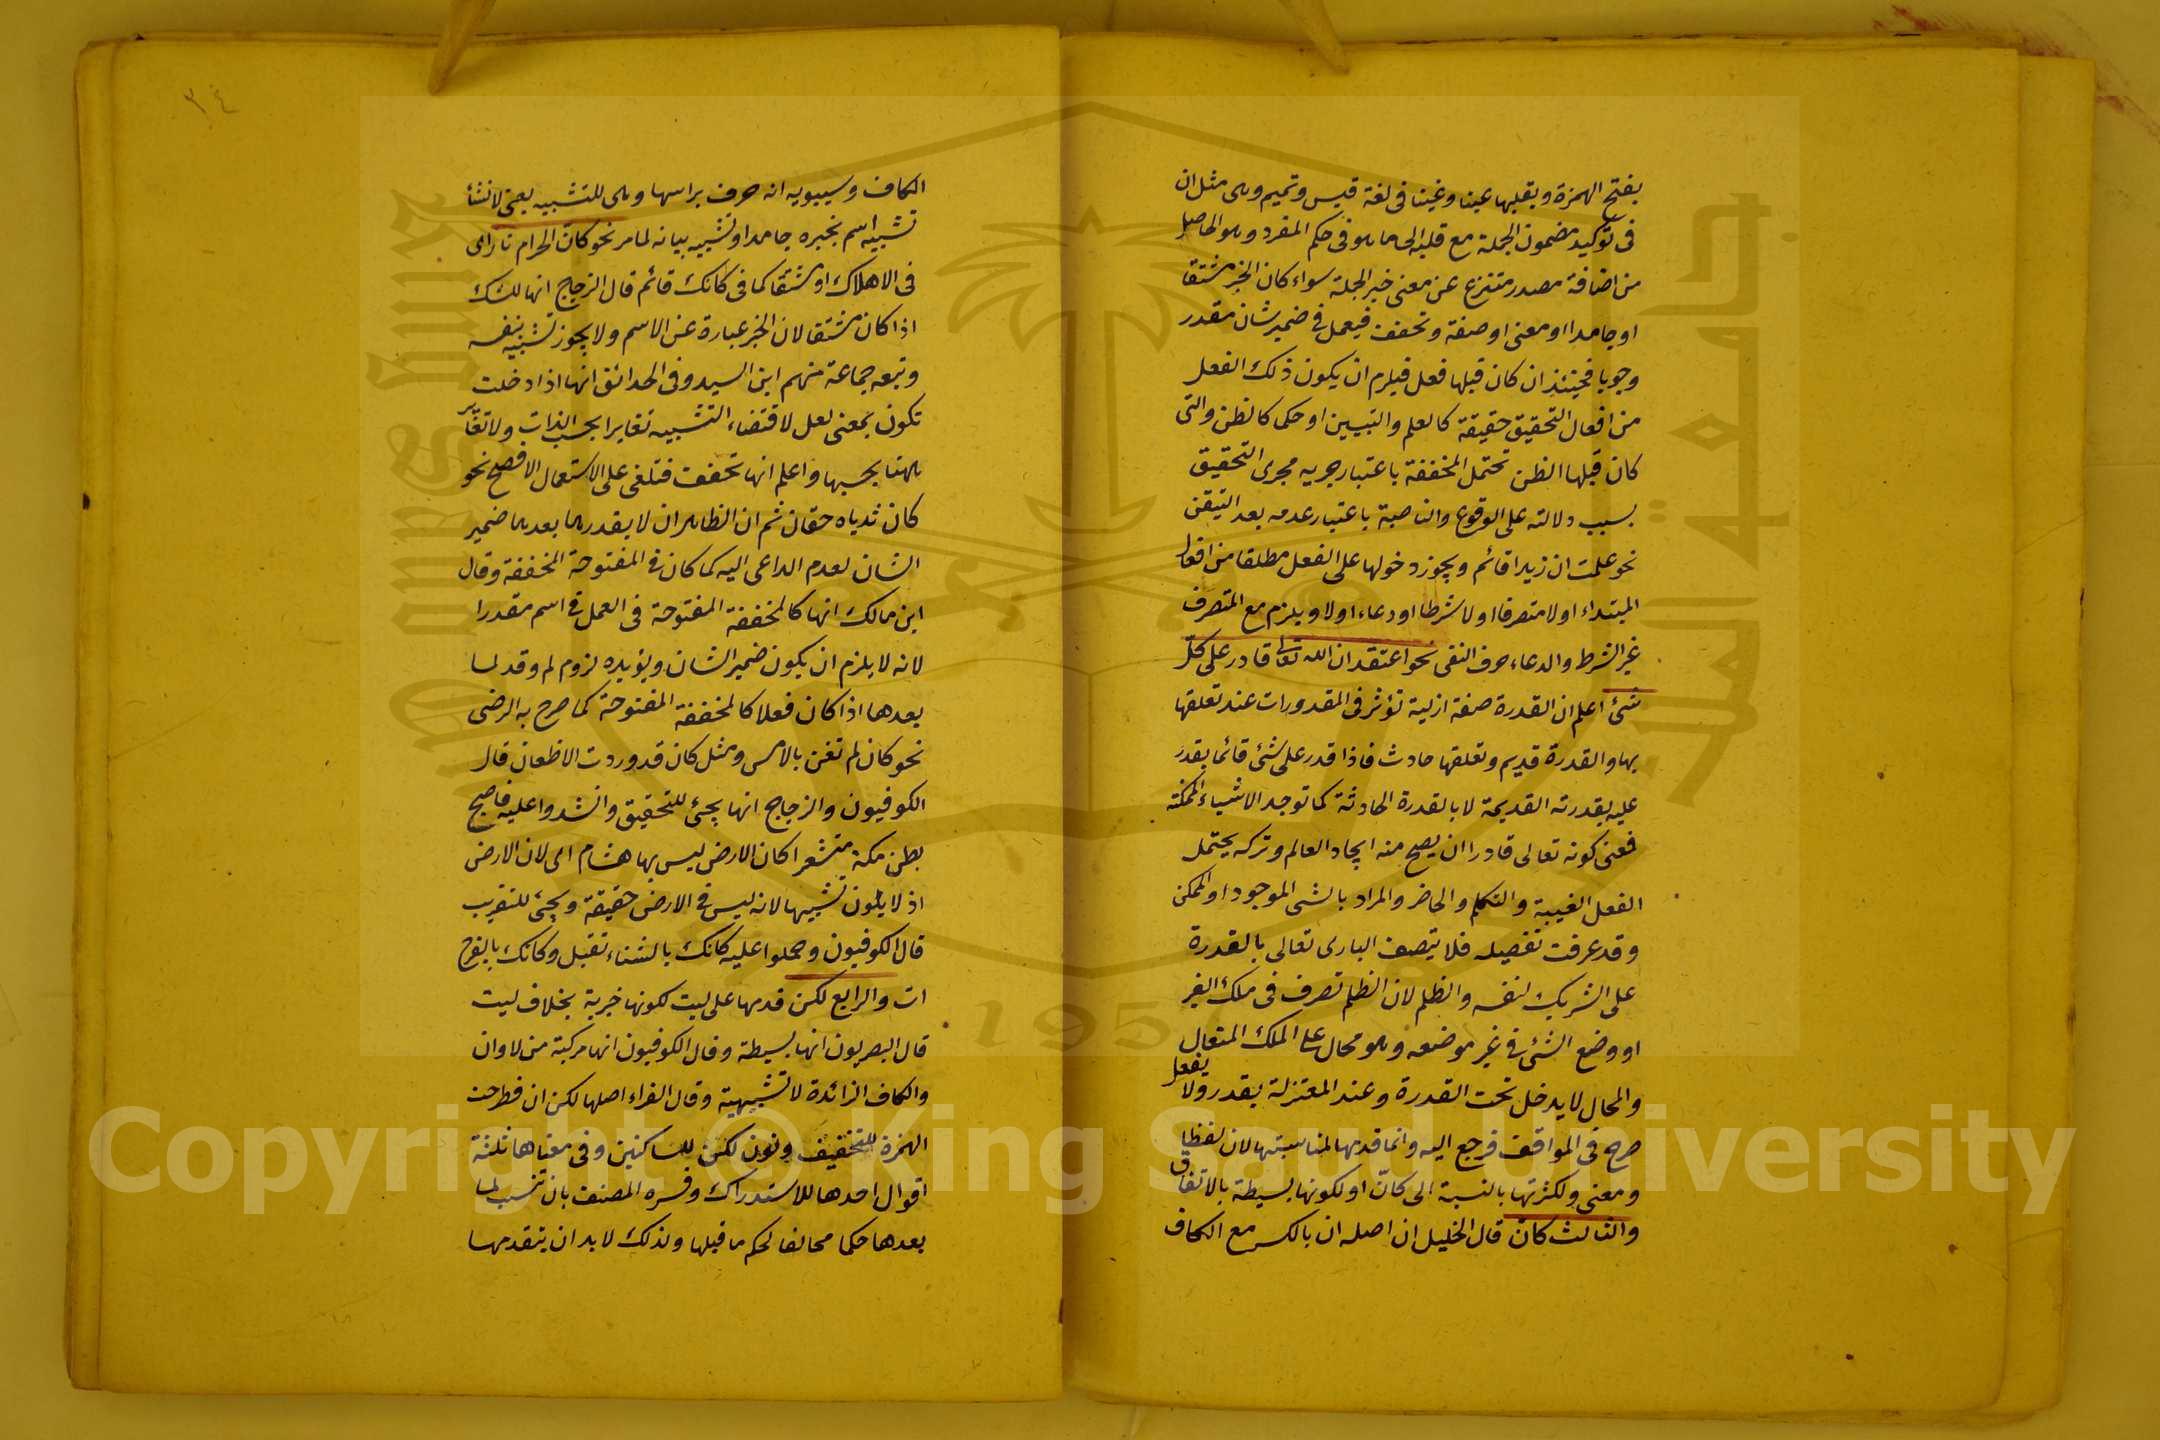 بفتح الهمزة وبقلبها عينا وغينا فى لغة قيس وتميم وهى مثل ان
فى توكيد مضمون الجملة مع قلبه الى ما هو فى حكم المفرد وهو الحاصل
من اضافة مصدر منتزع عن معنى خبر الجملة سواء كان الخبر مشتقا
او جامدا او معنى او صفة وتخفف فيعمل فى ضمير شان مقدر
وجوبا فحينئذ ان كان قبلها فعل فيلزم ان يكون ذلك الفعل
من افعال التحقيق حقيقة كالعلم والتبيين او حكما كالظن والتى
كان قبلها الظن تحتمل المخففة باعتبار جريه مجرى التحقيق
بسبب دلالته على الوقوع والناصبة باعتبار عدمه بعد التيقن
نحو علمت ان زيدا قائم ويجوز دخولها على الفعل مطلقا من افعال
المبتداء اولا متصرفا اولا شرطا او دعاء اولا ويلزم مع المتصرف
غير الشرط والدعاء حرف النفى نحو اعتقد ان الله تعالى قادر على كلّ
شئ اعلم ان القدرة صفة ازلية تؤثر فى المقدورات عند تعلقها
بها والقدرة قديم وتعلقها حادث فاذا قدر على شئ قائما يقدر
عليه بقدرته القديمة لا بالقدرة الحادثة كما توجد الاشياء الممكنة
فمعنى كونه تعالى قادرا ان يصح منه ايجاد العالم وتركه يحتمل
الفعل الغيبة والتكلم والحاضر والمراد بالشئ الموجود او الممكن
وقد عرفت تفصيله فلا يتصف البارى تعالى بالقدرة
على الشريك لنفسه والظلم لان الظلم تصرف فى ملك الغير
او وضع الشئ فى غير موضعه وهو محال على الملك المتعال
والمحال لا يدخل تحت القدرة وعند المعتزلة يقدر ولا يفعل
صرح فى المواقف فرجع اليه وانما قدمها لمناسبتها لان لفظا
ومعنى ولكثرتها بالنسبة الى كانّ او لكونها بسيطة بالاتفاق
والثالث كانّ قال الخليل ان اصله ان بالكسر مع الكاف
٣٤
الكاف وسيبويه انه حرف براسها وهى للتشبيه يعنى لانشأ
تشبيه اسم بخبره جامدا وتشبيه بيانه لما مر نحو كانّ الحرام نارا اى
فى الاهلاك او مشتقا كما فى كانك قائم قال الزجاج انها للشك
اذا كان مشتقا لان الخبر عبارة عن الاسم ولا يجوز تشبيه بنفسه
وتبعه جماعة منهم ابن السيد وفى الحدائق انها اذا دخلت
تكون بمعنى لعل لاقتضاء التشبيه تغايرا بحسب الذات ولا تغاير
ههنا بحسبها واعلم انها تخفف فتلغى على الاستعمال الافصح نحو
كان ثدياه حقان ثم ان الظاهر ان لا يقدر لها بعدها ضمير
الشان لعدم الداعى اليه كما كان فى المفتوحة المخففة وقال
ابن مالك انها كالمخففة المفتوحة فى العمل فى اسم مقدرا
لانه لا يلزم ان يكون ضمير الشان ويؤيده لزوم لم وقد لما
بعدها اذا كان فعلا كالمخففة المفتوحة كما صرح به الرضى
نحو كان لم تغن بالامس ومثل كان قد وردت الاظعان قال
الكوفيون والزجاج انها يجئ للتحقيق وانشدوا عليه فاصبح
بطن مكة مقشعرا كان الارض ليس بها هشام اى لان الارض
اذ لا يكون تشبيها لانه ليس فى الارض حقيقة ويجئ للتقريب
قال الكوفيون وحملوا عليه كانك بالشتاء تقبل وكانك بالفرج
ات والرابع لكن قدمها على ليت لكونها خبرية بخلاف ليت
قال البصريون انها بسيطة وقال الكوفيون انها مركبة من لا وان
والكاف الزائدة لا تشبيهية وقال الفراء اصلها لكن ان فطرحت
الهمزة للتخفيف ونون لكن للساكنين وفى معناها ثلثة
اقوال احدها للاستدراك وفسره المصنف بان تنسب لما
بعدها حكما مخالفا لحكم ما قبلها ولذلك لا بد ان يتقدمها
جامعة الملك سعود
King Saud University
1957
Copyright © King Saud University